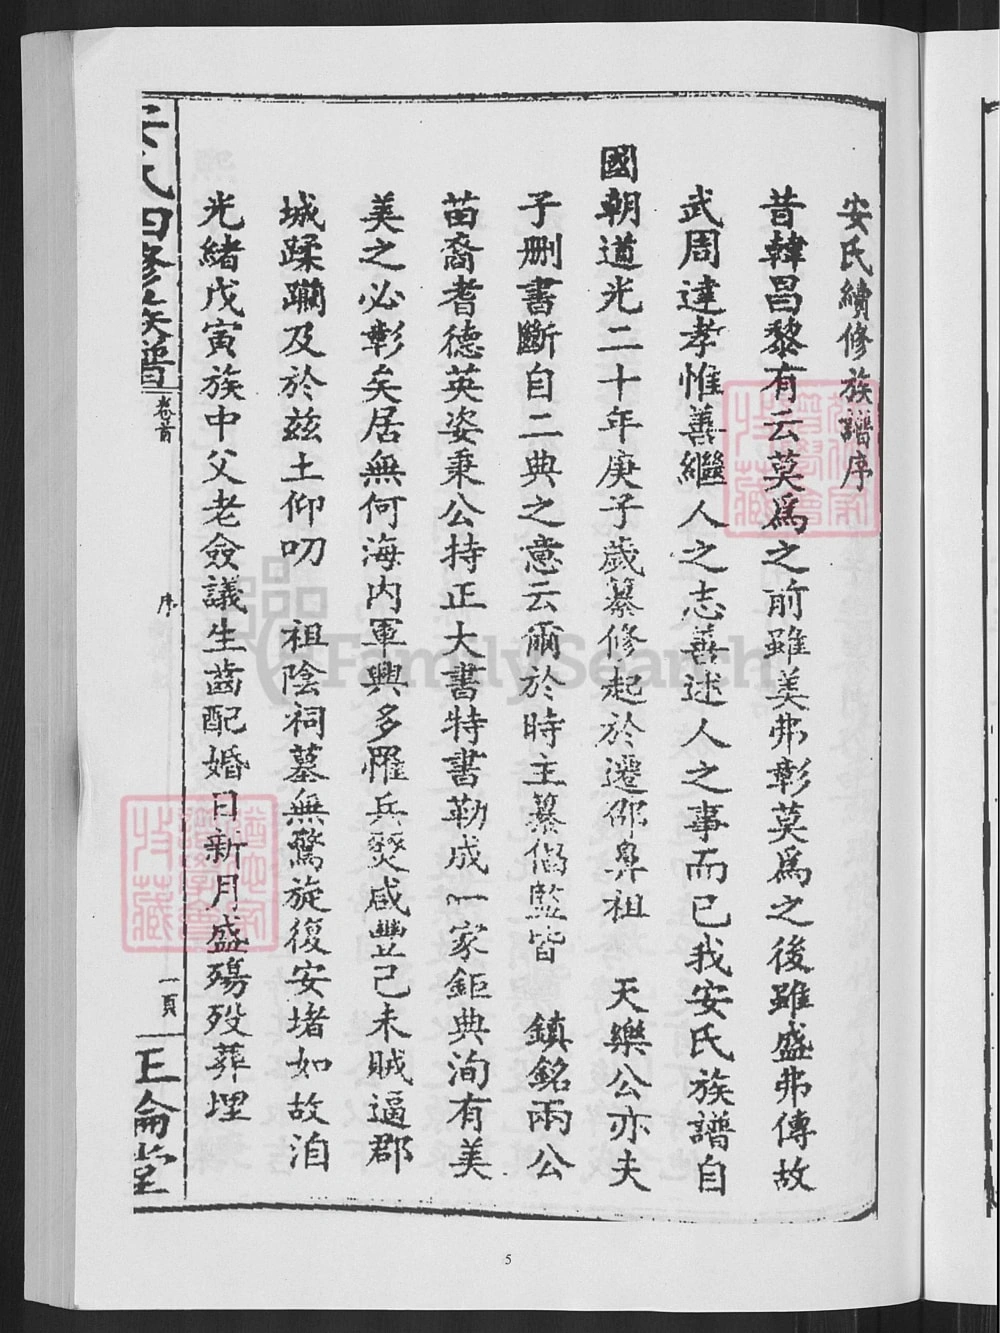 安氏續修族譜序
昔韓昌黎有云莫爲之前雖美弗彰莫爲之後雖盛弗傳故
武周達孝惟善繼人之志善述人之事而已我安氏族譜自
國朝道光二十年庚子歲纂修起於遷邵鼻祖 天樂公亦夫
子刪書斷自二典之意云爾於時主纂倡監皆 鎮銘兩公
苗裔耆德英姿秉公持正大書特書勒成一家鉅典洵有美
美之必彰矣居無何海内軍興多罹兵燹咸豐己未賊逼郡
城蹂躪及於兹土仰叨 祖陰祠墓無驚旋復安堵如故洎
光緒戊寅族中父老僉議生齒配婚日新月盛殤殁葬埋
安氏四修族譜 卷首 序 一頁 正倫堂
FamilySearch
收藏
5